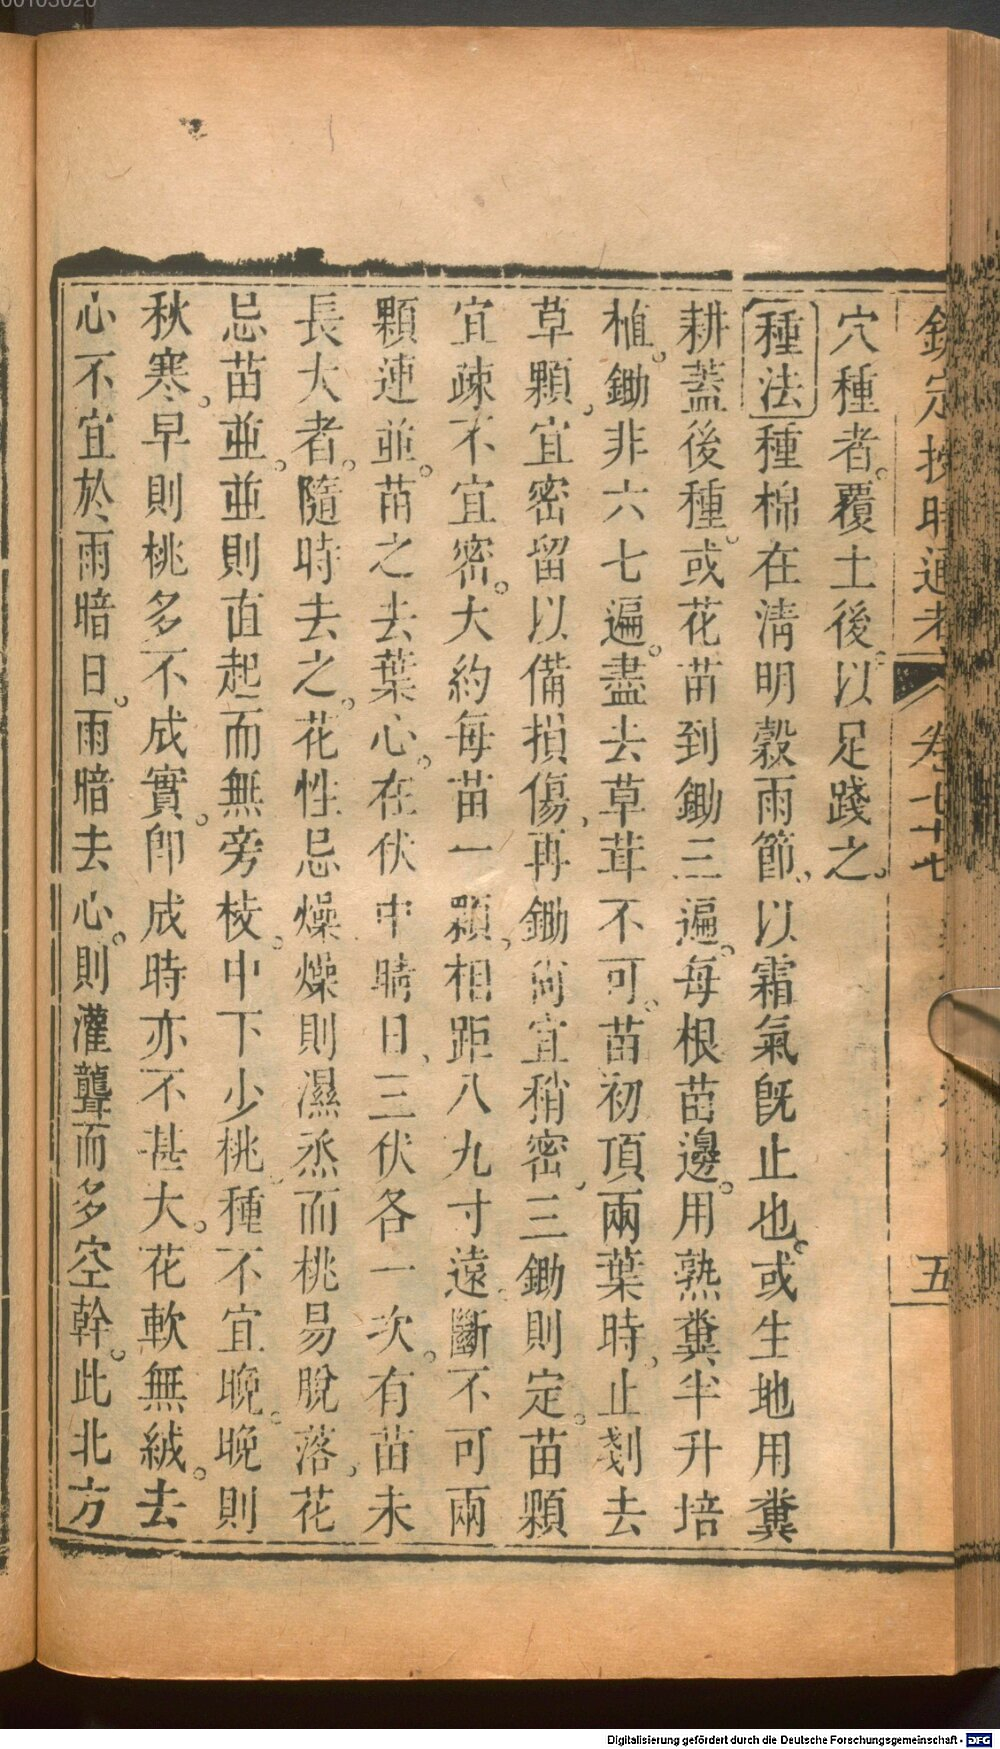 欽定授時通考 卷七十七 五
穴種者。覆土後以足踐之。
種法種棉在清明穀雨節、以霜氣旣止也。或生地用糞
耕蓋後種。或花苗到鋤三遍。每根苗邊。用熟糞半升培
植。鋤非六七遍。盡去草茸不可。苗初頂兩葉時、止剗去
草顆、宜密留以備損傷、再鋤尚宜稍密、三鋤則定。苗顆
宜疎不宜密。大約每苗一顆、相距八九寸遠、斷不可兩
顆連並。苗之去葉心、在伏中晴日、三伏各一次。有苗未
長大者。隨時去之。花性忌燥燥則濕烝而桃易脫落、花
忌苗並。並則直起而無旁枝、中下少桃、種不宜晚。晚則
秋寒。早則桃多不成實。卽成時亦不甚大。花軟無絨。去
心不宜於雨暗日。雨暗去心。則灌聾而多空幹。此北方
00103020
Digitalisierung gefördert durch die Deutsche Forschungsgemeinschaft - DFG